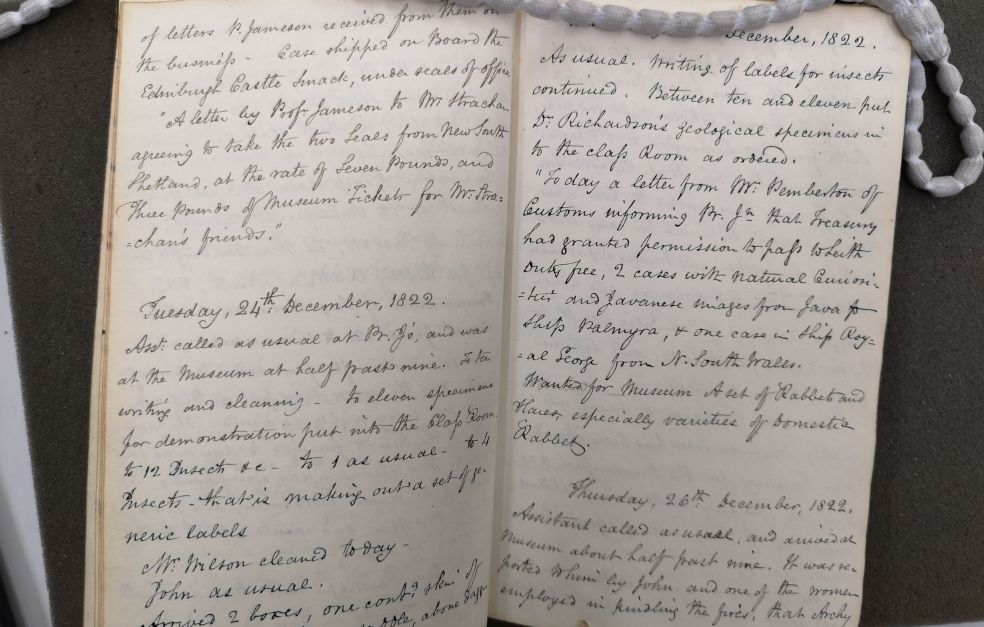 of letters P. Jameson received from them on
the business - Case shipped on Board the
Edinburgh Castle Smack, under seals of office
"A letter by Profr. Jameson to Mr. Strachan
agreeing to take the two Seals from New South
Shetland, at the rate of Seven Pounds, and
Three Pounds of Museum Tickets for Mr. Stra=
=chan's friends."
Tuesday, 24th. December, 1822.
Asst. called as usual at Pr. Js, and was
at the Museum at half past nine. To ten
writing and cleaning - to eleven specimens
for demonstration put into the Class Room.
to 12 Insects &c - to 1 as usual - to 4
Insects - that is making out a set of ge-
neric labels
Mr. Wilson cleaned today -
John as usual.
Arrived 2 boxes, one contg. skin of
, a bone
December, 1822.
As usual. Writing of labels for insects
continued. Between ten and eleven put
Dr. Richardson's geological specimens in
to the class Room as ordered.
"Today a letter from Mr. Pemberton of
Customs informing Pr. Jn that Treasury
had granted permission to pass to Leith
duty free, 2 cases with natural Curiosi-
=ties and Javanese images from Java p
Ship Palmyra, & one case in Ship Roy-
=al George from N. South Wales.
Wanted for Museum A set of Rabbets and
Hares, especially varieties of Domestic
Rabbet.
Thursday, 26th. December, 1822.
Assistant called as usual, and arrived at
Museum about half past nine. It was re-
ported to him by John and one of the women
employed in kindling the fires, that Archy